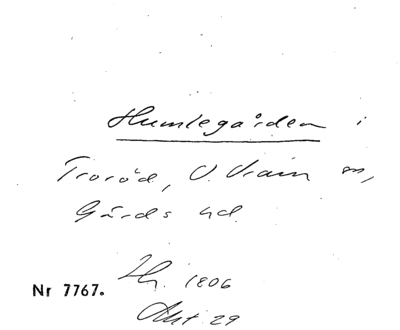 Humlegården i
Troröd, V. Vram sn,
Gärds hd.
Lh. 1806
Akt 29
Nr 7767.